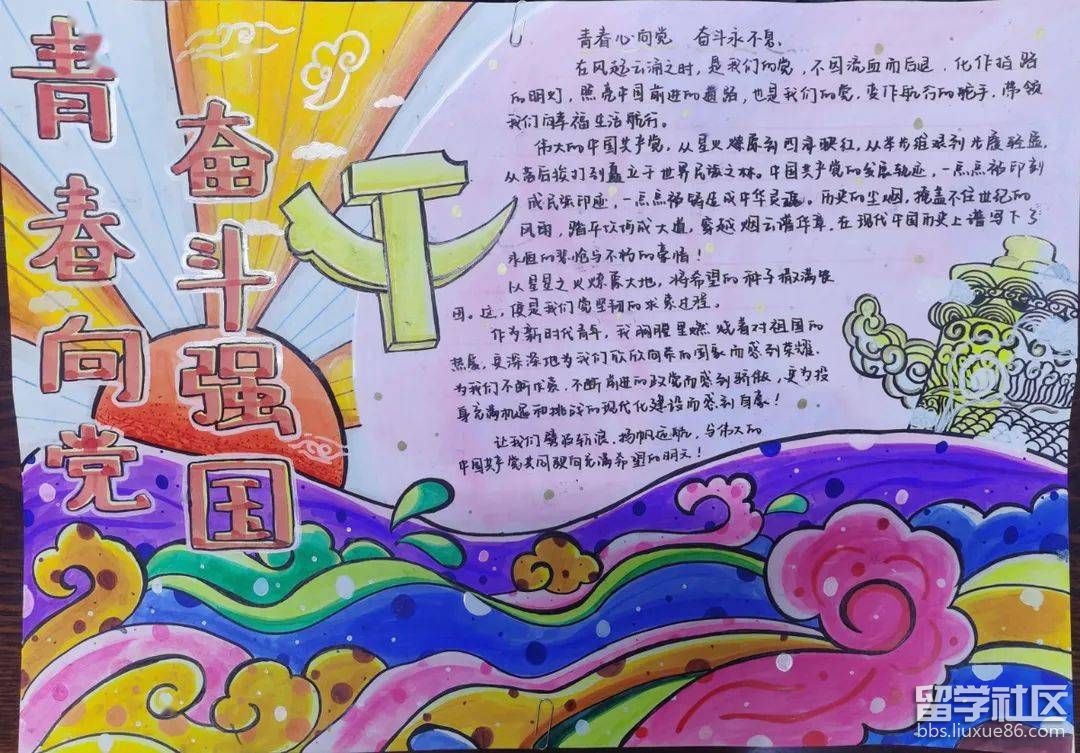 青春向党
奋斗强国
青春心向党 奋斗永不息
在风起云涌之时，是我们的党，不因流血而后退，化作指路
的明灯，照亮中国前进的道路，也是我们的党，变作航行的舵手，带领
我们向幸福生活航行。
伟大的中国共产党，从星火燎原到四海映红，从举步维艰到步履轻盈，
从落后挨打到矗立于世界民族之林。中国共产党的发展轨迹，一点点被印刻
成民族印迹，一点点被铸造成中华灵魂。历史的尘烟，掩盖不住世纪的
风雨，踏平坎坷成大道，穿越烟云谱华章，在现代中国历史上谱写下了
永恒的悲怆与不朽的豪情！
以星星之火燎原大地，将希望的种子撒满农
田。这，便是我们党坚韧的求索过程。
作为新时代青年，我胸膛里燃烧着对祖国的
热爱，更深深地为我们欣欣向荣的国家而感到荣耀，
为我们不断求索，不断前进的政党而感到骄傲，更为投
身充满机遇和挑战的现代化建设而感到自豪！
让我们劈波斩浪、扬帆远航，与伟大的
中国共产党共同驶向充满希望的明天！
留学社区
bbs.liuxue86.com